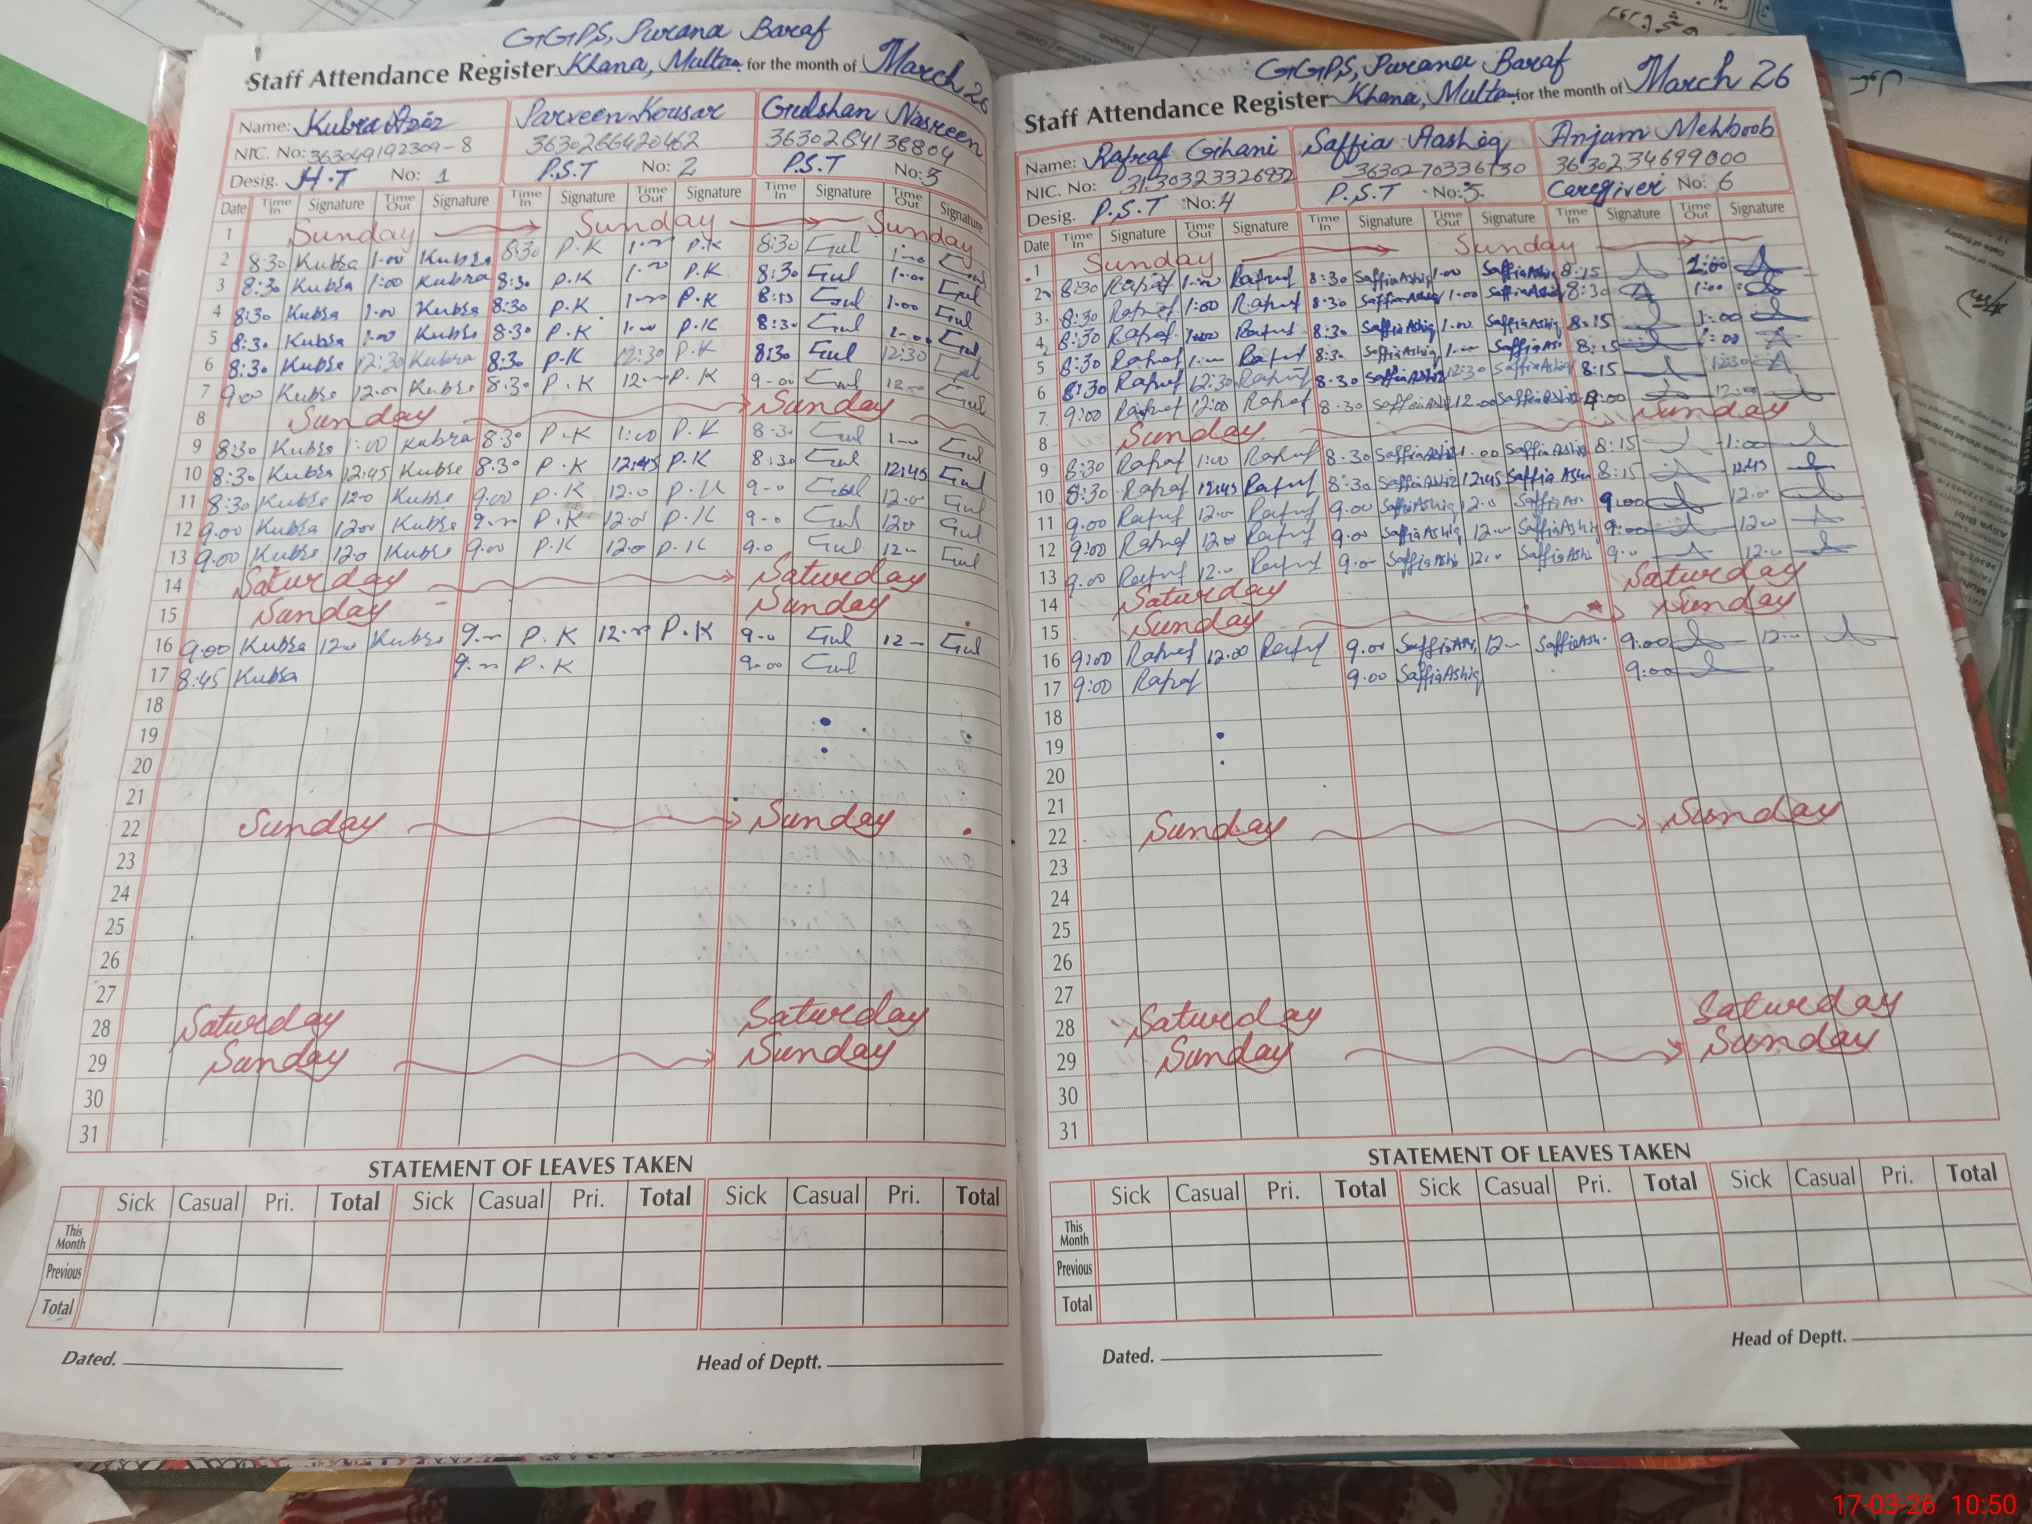 GGPS, Purana Baraf
Staff Attendance Register Khana, Multan for the month of March 26
Name: Kubra Aziz Parveen Kousar Gulshan Nasreen
NIC. No: 363049192309-8 3630266420462 3630284136804
Desig. H.T No: 1 P.S.T No: 2 P.S.T No: 3
Date Time In Signature Time Out Signature Time In Signature Time Out Signature Time In Signature Time Out Signature
1 Sunday Sunday Sunday
2 8:30 Kubra 1:00 Kubra 8:30 P.K 1:00 P.K 8:30 Gul 1:00 Gul
3 8:30 Kubra 1:00 Kubra 8:30 P.K 1:00 P.K 8:30 Gul 1:00 Gul
4 8:30 Kubra 1:00 Kubra 8:30 P.K 1:00 P.K Gul 1:00 Gul
5 8:30 Kubra 1:00 Kubra 8:30 P.K 1:00 P.K 8:30 Gul 1:00 Gul
6 8:30 Kubra 12:30 Kubra 8:30 P.K 12:30 P.K 8:30 Gul 12:30 Gul
7 9:00 Kubra 12:00 Kubra 8:30 P.K 12:00 P.K 9:00 Gul 12:00 Gul
8 Sunday Sunday
9 8:30 Kubra 1:00 Kubra 8:30 P.K 1:00 P.K 8:30 Gul 1:00 Gul
10 8:30 Kubra 12:45 Kubra 8:30 P.K 12:45 P.K 8:30 Gul 12:45 Gul
11 8:30 Kubra 12:0 Kubra 9:00 P.K 12:0 P.K 9:0 Gul 12:00 Gul
12 9:00 Kubra 12:00 Kubra 9:00 P.K 12:0 P.K 9:0 Gul 12:0 Gul
13 9:00 Kubra 12:0 Kubra 9:00 P.K 12:0 P.K 9:0 Gul 12:00 Gul
14 Saturday Saturday
15 Sunday Sunday
16 9:00 Kubra 12:0 Kubra 9:00 P.K 12:00 P.K 9:0 Gul 12:00 Gul
17 8:45 Kubra 9:00 P.K 9:00 Gul
18
19
20
21
22 Sunday Sunday
23
24
25
26
27
28 Saturday Saturday
29 Sunday Sunday
30
31
STATEMENT OF LEAVES TAKEN
Sick Casual Pri. Total Sick Casual Pri. Total Sick Casual Pri. Total
This Month
Previous
Total
Dated. Head of Deptt.
GGPS, Purana Baraf
Staff Attendance Register Khana, Multan for the month of March 26
Name: Rafraf Gihani Saffia Aashiq Anjum Mehboob
NIC. No: 3130323326932 3630270336730 3630234699000
Desig. P.S.T No: 4 P.S.T No: 5 Caregiver No: 6
Date Time In Signature Time Out Signature Time In Signature Time Out Signature Time In Signature Time Out Signature
1 Sunday Sunday
2 8:30 Rafraf 1:00 Rafraf 8:30 Saffia Ashiq 1:00 Saffia Ashiq 8:15 1:00
3 8:30 Rafraf 1:00 Rafraf 8:30 Saffia Ashiq 1:00 Saffia Ashiq 8:30 1:00
4 8:30 Rafraf 1:00 Rafraf 8:30 Saffia Ashiq 1:00 Saffia Ashiq 8:15 1:00
5 8:30 Rafraf 1:00 Rafraf 8:30 Saffia Ashiq 1:00 Saffia As 8:15 1:00
6 8:30 Rafraf 12:30 Rafraf 8:30 Saffia Ashiq 12:30 Saffia Ashiq 8:15 12:30
7 9:00 Rafraf 12:00 Rafraf 8:30 Saffia Ashiq 12:00 Saffia Ashiq 9:00 12:00
8 Sunday Sunday
9 8:30 Rafraf 1:00 Rafraf 8:30 Saffia Ashiq 1:00 Saffia Ashiq 8:15 1:00
10 8:30 Rafraf 12:45 Rafraf 8:30 Saffia Ashiq 12:45 Saffia Ashiq 8:15 12:45
11 9:00 Rafraf 12:00 Rafraf 9:00 Saffia Ashiq 12:0 Saffia As 9:00 12:0
12 9:00 Rafraf 12:0 Rafraf 9:00 Saffia Ashiq 12:00 Saffia Ashiq 9:00 12:0
13 9:00 Rafraf 12:00 Rafraf 9:00 Saffia Ashiq 12:00 Saffia Ashi 9:0 12:00
14 Saturday Saturday
15 Sunday Sunday
16 9:00 Rafraf 12:00 Rafraf 9:00 Saffia Ashi 12:00 Saffia Ash 9:00 12:00
17 9:00 Rafraf 9:00 Saffia Ashiq 9:00
18
19
20
21
22 Sunday Sunday
23
24
25
26
27
28 Saturday Saturday
29 Sunday Sunday
30
31
STATEMENT OF LEAVES TAKEN
Sick Casual Pri. Total Sick Casual Pri. Total Sick Casual Pri. Total
This Month
Previous
Total
Dated. Head of Deptt.
17-03-26 10:50